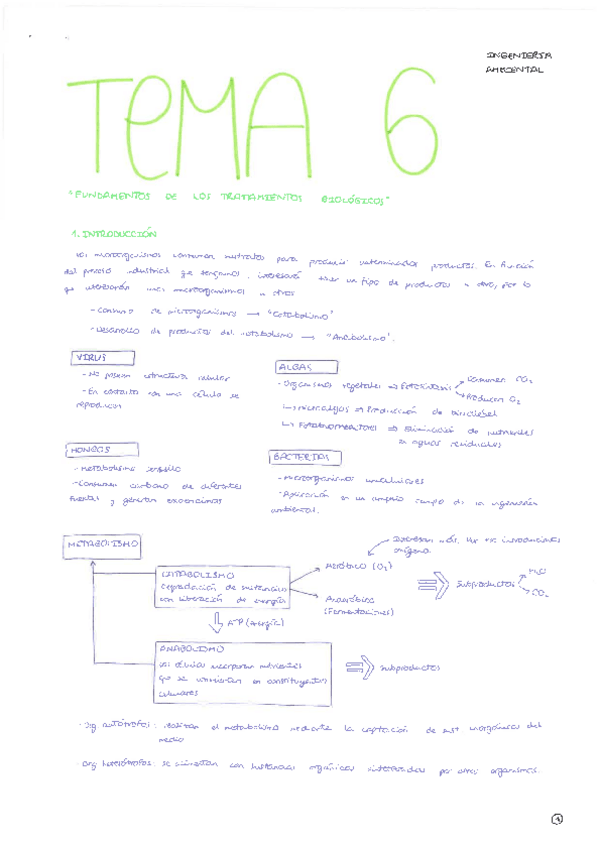 INGENIERÍA
AMBIENTAL
TEMA 6
"FUNDAMENTOS DE LOS TRATAMIENTOS BIOLÓGICOS"
1. INTRODUCCIÓN
Los microorganismos consumen sustratos para producir determinados productos. En función
del proceso industrial que tengamos, interesará tener un tipo de productos u otro, por lo
que interesarán unos microorganismos u otros
- Consumo de microorganismos → "Catabolismo"
- Desarrollo de productos del metabolismo → "Anabolismo".
VIRUS
- No poseen estructura celular
- En contacto con una célula se
reproducen
ALGAS
- Organismos vegetales ⇒ Fotosíntesis
Consumen CO2
Producen O2
↳ Microalgas ⇒ Producción de biodiésel
↳ ⇒ Eliminación de nutrientes
en aguas residuales
HONGOS
- Metabolismo sencillo
- Consumen carbono de diferentes
fuentes y generan
BACTERIAS
- Microorganismos unicelulares
- Aplicación en un amplio campo de la ingeniería
ambiental.
METABOLISMO
Interesan más, introducimos
oxígeno
CATABOLISMO
Degradación de sustancias
con liberación de energía
Aeróbico (O2)
Anaeróbico
(Fermentaciones)
Subproductos
H2O
CO2
ATP (Energía)
ANABOLISMO
Las células incorporan nutrientes
que se convierten en constituyentes
celulares
Subproductos
- Org autótrofos: realizan el metabolismo mediante la captación de sust inorgánicas del
medio
- Org heterótrofos: se alimentan con sustancias orgánicas sintetizadas por otros organismos.
1